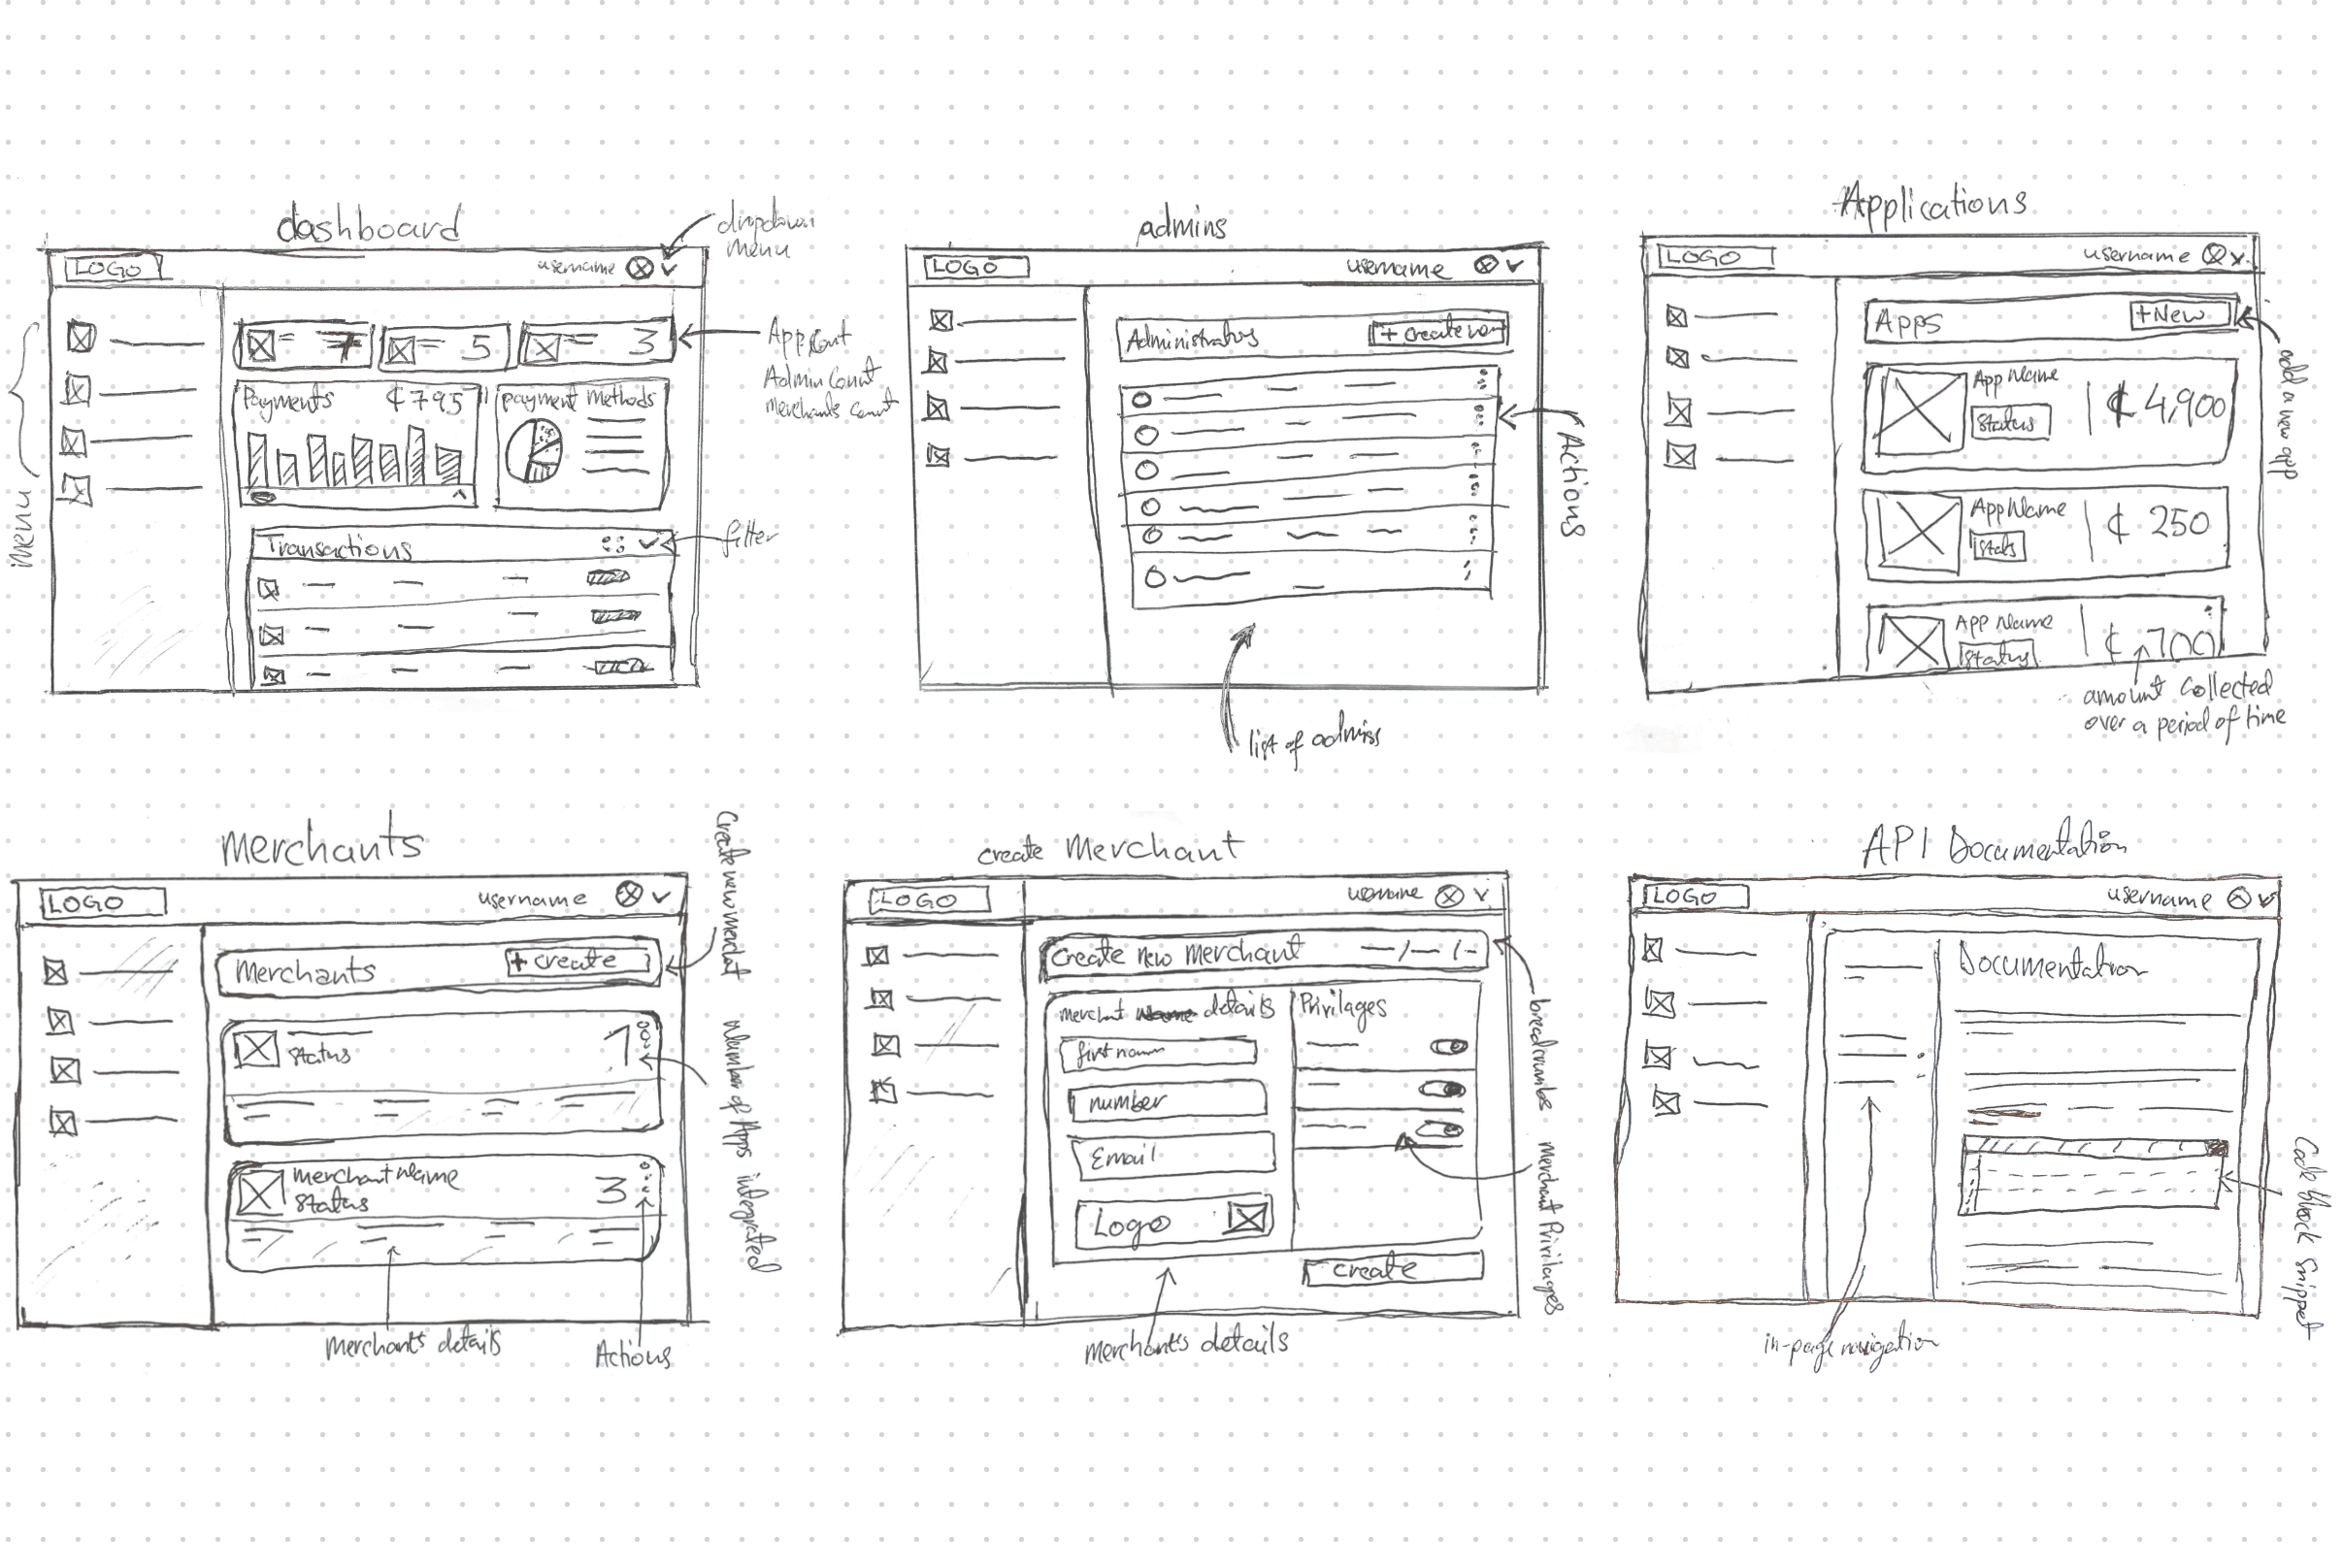 dashboard
dropdown
menu
LOGO
username
menu
7
5
3
App Count
Admin Count
Merchants Count
Payments ₵795
payment Methods
Transactions
filter
admins
LOGO
username
Administrators
Actions
list of admins
Applications
LOGO
username
Apps
+New
add a new app
App Name
Status
₵ 4,900
App Name
₵ 250
App Name
Status
₵ 700
amount collected
over a period of time
Merchants
LOGO
username
Create new merchant
Merchants
+ create
Status
1
Number of Apps integrated
Merchant Name
Status
3
Merchants details
Actions
create Merchant
LOGO
username
Create new merchant
breadcrumbs
merchant details
Privilages
first name
number
Email
Logo
create
Merchant Privilages
merchants details
API Documentation
LOGO
username
Documentation
Code block snippet
in-page navigation